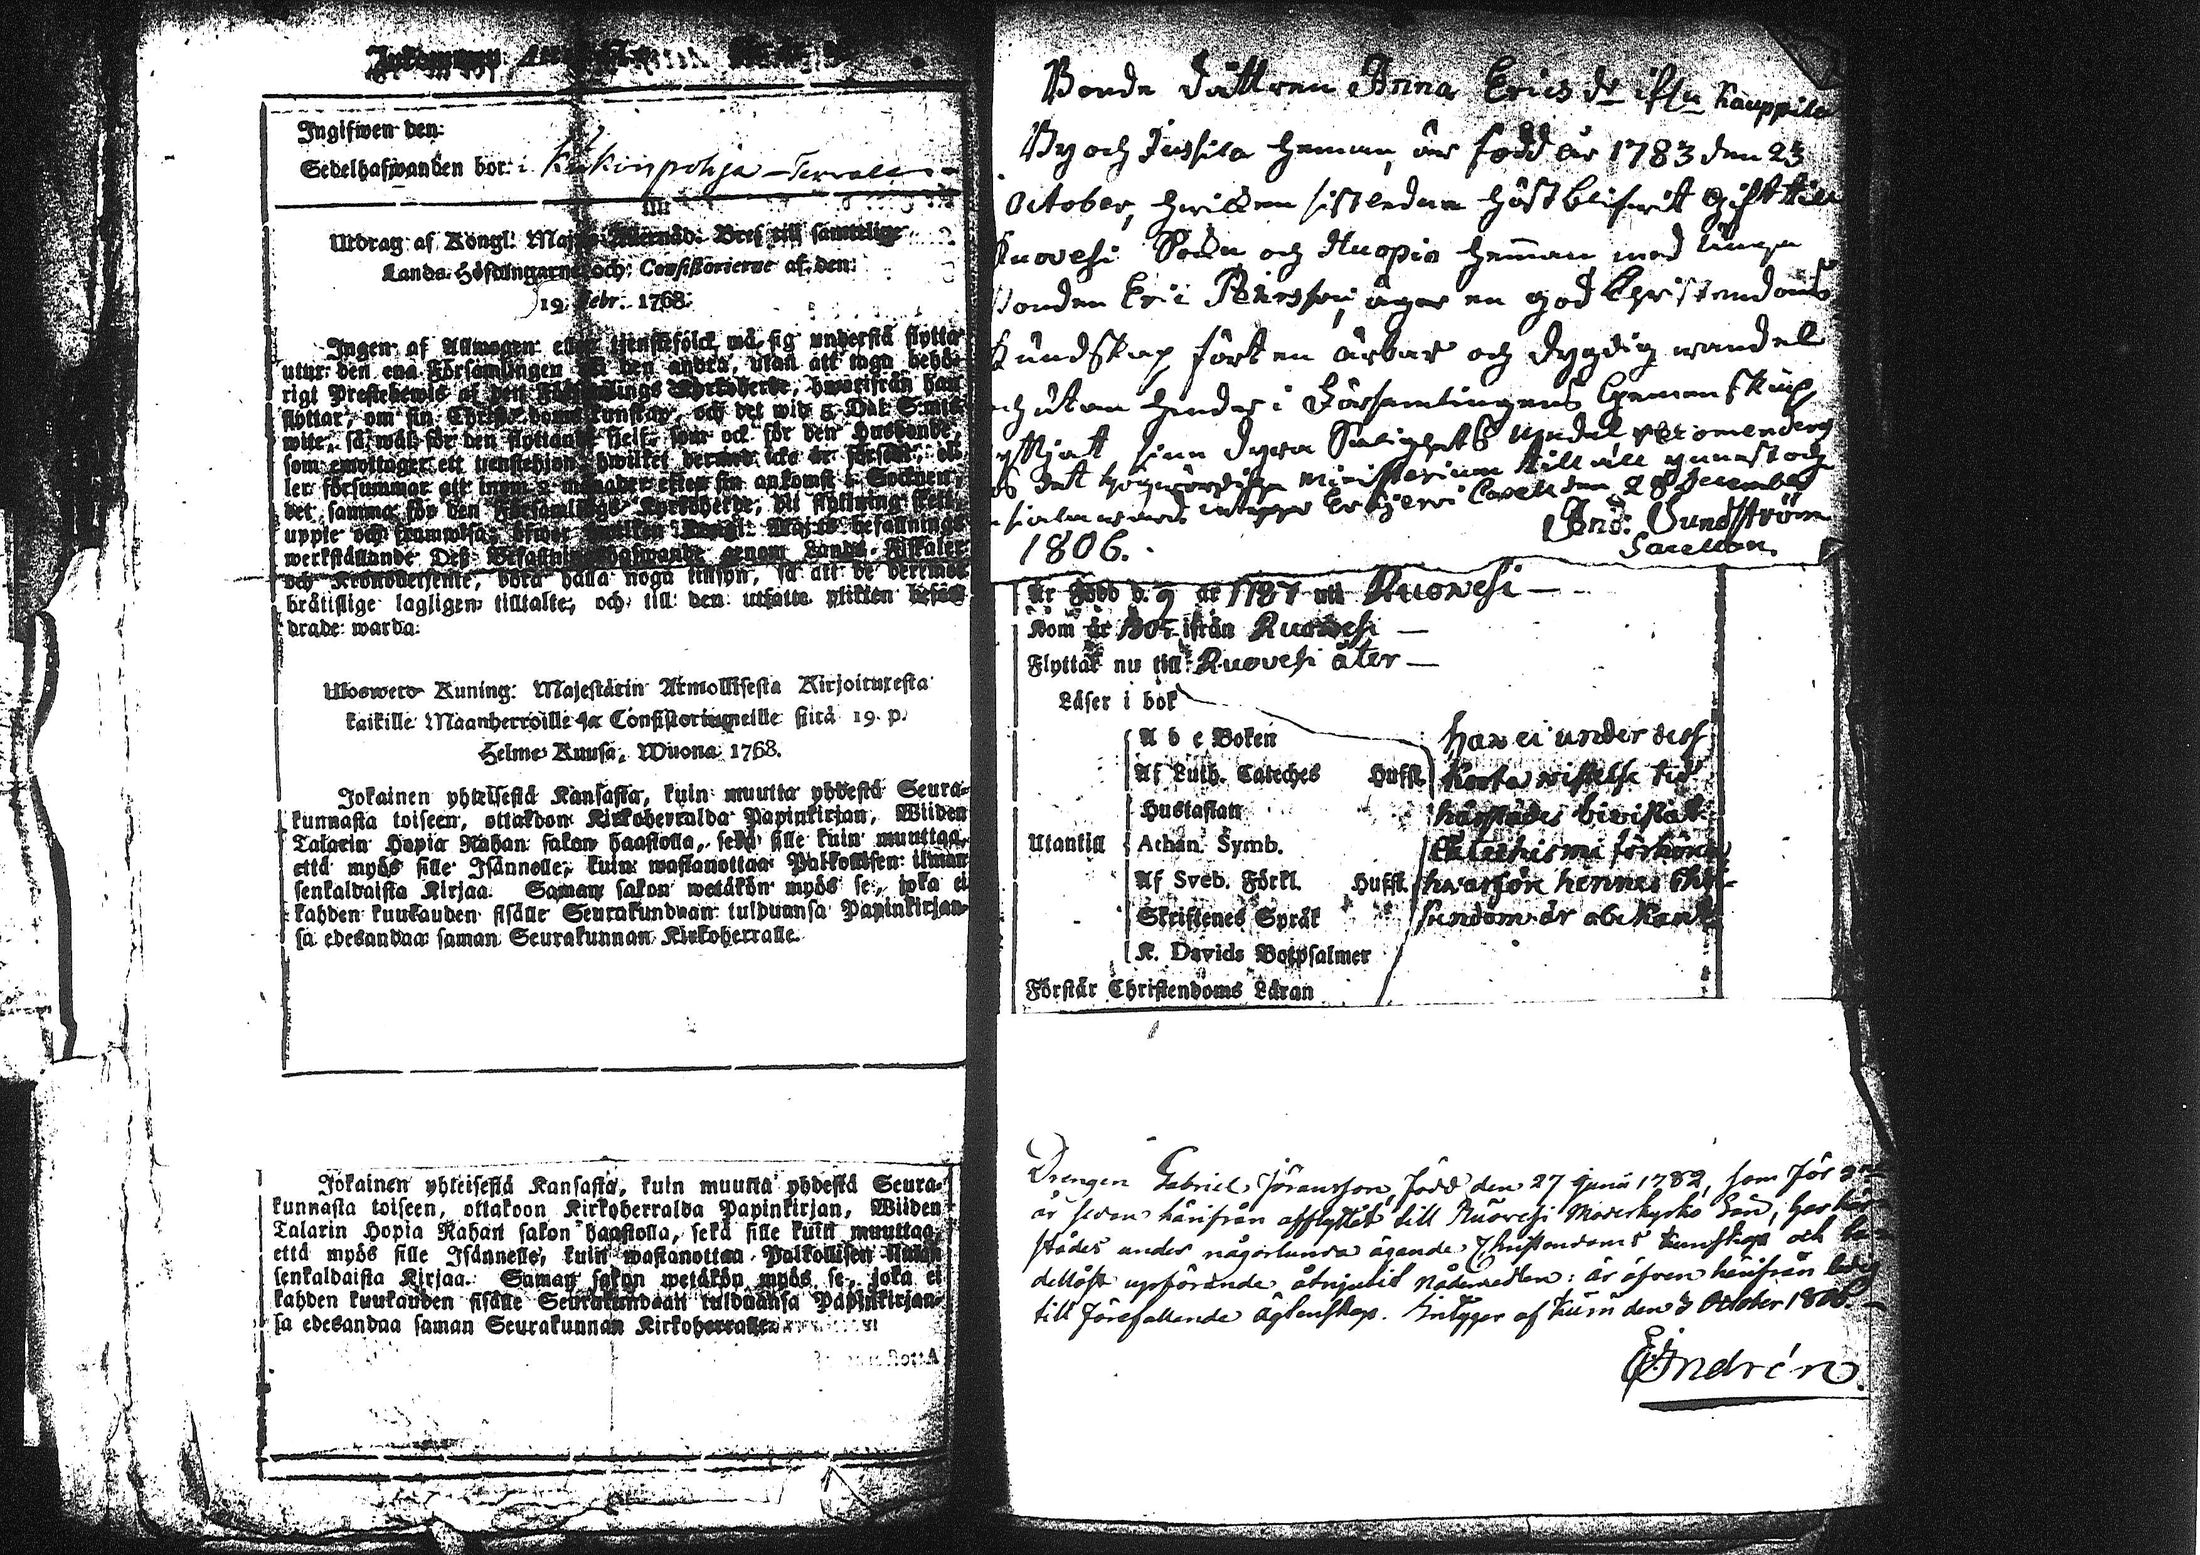 Ingifwen den:
Sedelhafwanden bor i Kekinpohja
Utdrag af Kongl. Maj:ts Allernåd. Bref till samtelige
Lands-Höfdingarne och Consistorierne af den
19 Febr. 1768.
Ingen af Allmogen eller tienstefolck må sig understå flytta
utur den ena Församlingen til den andra, utan att taga behö-
rigt Prestebewis af den Församlings Kyrkoherde, hwarifrån han
flyttar, om sin Christendoms kunskap, och det wid 5 Dal. S:mt
wite, så wäl för den flyttande sielf, som ock för den Husbonde,
som emottager ett tienstehjon, hwilket dermed icke är försedt, el-
ler försummar att inom 2 månader efter sin ankomst i Socknen,
det samma för den Församlings Kyrkoherde, dit flyttning skett,
uppte och framwisa; öfwer hwilken Kongl. Maj:ts befallnings
werkställande Deß Befallningshafwande genom Lands-Fiskaler
och Kronobetjente, böra hålla noga tilsyn, så att de deremot
bråtislige lagligen tilltalte, och till den utsatte plikten befor-
drade warda.
Ulosweto Kuning. Majestätin Armollisesta Kirjoituxesta
kaikille Maanherroille ja Consistoriumeille siitä 19. p.
Helme Kuusa, Wuona 1768.
Jokainen yhteisestä Kansasta, kuin muutta yhdestä Seura-
kunnasta toiseen, ottakoon Kirkoherralda Papinkirjan, Wiiden
Talarin Hopia Rahan sakon haastolla, sekä sille kuin muuttaa,
että myös sille Isännelle, kuin wastanottaa Palkollisen ilman
senkaldaista Kirjaa. Saman sakon wetäkön myös se, joka ei
kahden kuukauden sisälle Seurakundaan tulduansa Papinkirjan-
sa edesandaa saman Seurakunnan Kirkoherralle.
Jokainen yhteisestä Kansasta, kuin muutta yhdestä Seura-
kunnasta toiseen, ottakoon Kirkoherralda Papinkirjan, Wiiden
Talarin Hopia Rahan sakon haastolla, sekä sille kuin muuttaa,
että myös sille Isännelle, kuin wastanottaa Palkollisen ilman
senkaldaista Kirjaa. Saman sakon wetäkön myös se, joka ei
kahden kuukauden sisälle Seurakundaan tulduansa Papinkirjan-
sa edesandaa saman Seurakunnan Kirkoherralle.
Bonde dottren Anna Ericsdr ifrn Kauppila
By och Jussila Heman, är född år 1783 den 23
October, hwilken sistledne höst blifwit Gift till
Ruovesi Sokn och Kuopio Hemman med unga
Bonden Eric Persson, äger en god Christendoms
Kundskap, fört en ärbar och dygdig wandel
och utom hinder i Församlingens Gemenskap
sina dyra Salighets Medel recomenderes
det Högwördiga Ministerium till all gunst och
den 28 December
1806.
And: Sundström
Sacellan.
Är Född d. 9 år 1787 uti Ruovesi
Kom år 1805 ifrån Ruovesi
Flyttar nu till Ruovesi åter
Läser i bok
A b c Boken
Af Luth. Cateches Hufst.
Hustaflan
Utantill Athan. Symb.
Af Sveb. Förkl. Hufst.
Skriftenes Språk
K. Davids Botpsalmer
Förstår Christendoms Läran
har ei under dess
korta wistelse tid
härstädes bivistat
Catechismi förhören
hwarföre hennes Chri-
stendom är obekant
Drengen Gabriel Jöransson, född den 27 Junii 1782, som för
år sedan härifrån afflyttat till Ruovesi Moderkyrko Sån, har här
städes under någorlunda ägande Christendoms kunskap och
uppförande åtnjutit Nådemedlen: är äfven härifrån ledig
till förefallende Ägtenskap. Intyger af Kuru den 3 October 1806.
E: Indrén